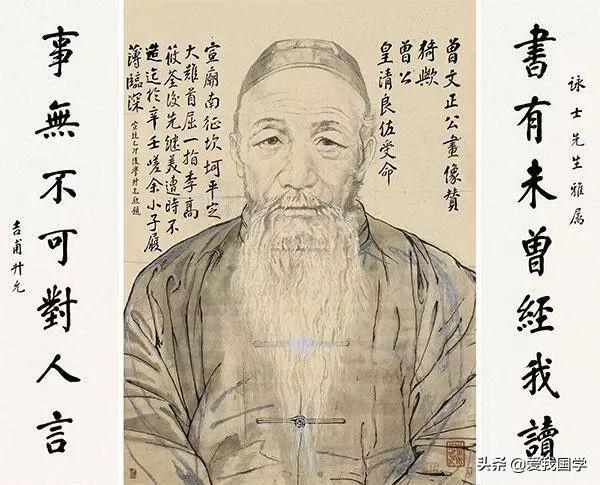 詠士先生雅属
書有未曾經我讀
曾文正公畫像贊
猗歟
曾公
皇清良佐受命
宣廟南征坎坷平定
大難首屈一指李高
筱荃後先继美遭時不
造迄於辛壬嗟余小子履
薄臨深
宣統乙卯後學升允敬題
事無不可對人言
吉甫升允
头条 @爱我国学